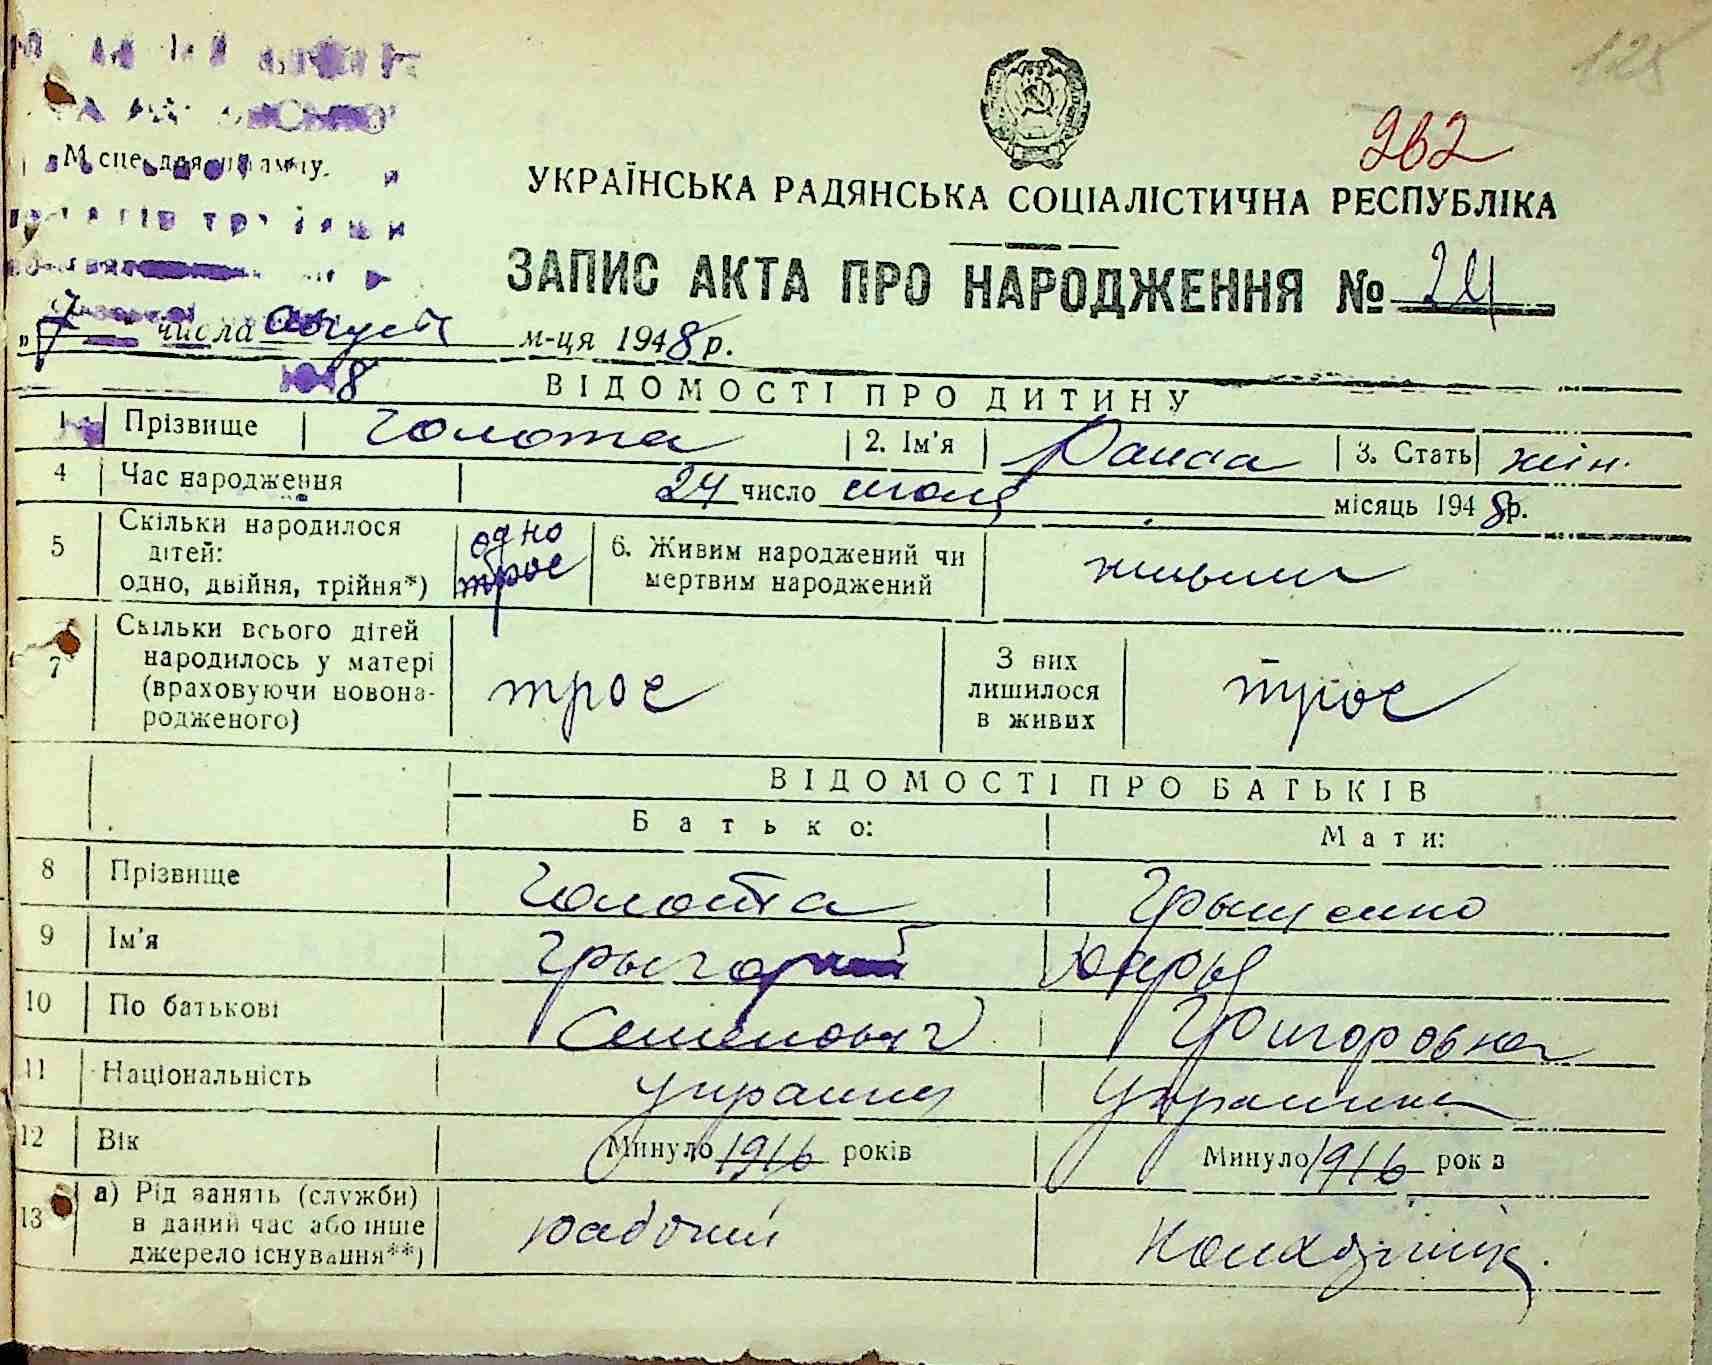 128
262
Місце для штампу.
УКРАЇНСЬКА РАДЯНСЬКА СОЦІАЛІСТИЧНА РЕСПУБЛІКА
ЗАПИС АКТА ПРО НАРОДЖЕННЯ № 24
„7 числа август м-ця 1948 р.
8
ВІДОМОСТІ ПРО ДИТИНУ
1 Прізвище Голота 2. Ім'я Раиса 3. Стать жін.
4 Час народження 24 число июля місяць 1948 р.
5 Скільки народилося дітей: одно, двійня, трійня*) одно трое 6. Живим народжений чи мертвим народжений живым
7 Скільки всього дітей народилось у матері (враховуючи новонародженого) трое З них лишилося в живих трое
ВІДОМОСТІ ПРО БАТЬКІВ
Батько: Мати:
8 Прізвище Голота Грыценко
9 Ім'я Грыгорий Дарья
10 По батькові Семенович Григоровна
11 Національність украинец украинка
12 Вік Минуло 1916 років Минуло 1916 рок в
13 а) Рід занять (служби) в даний час або інше джерело існування**) рабочий колхозник.